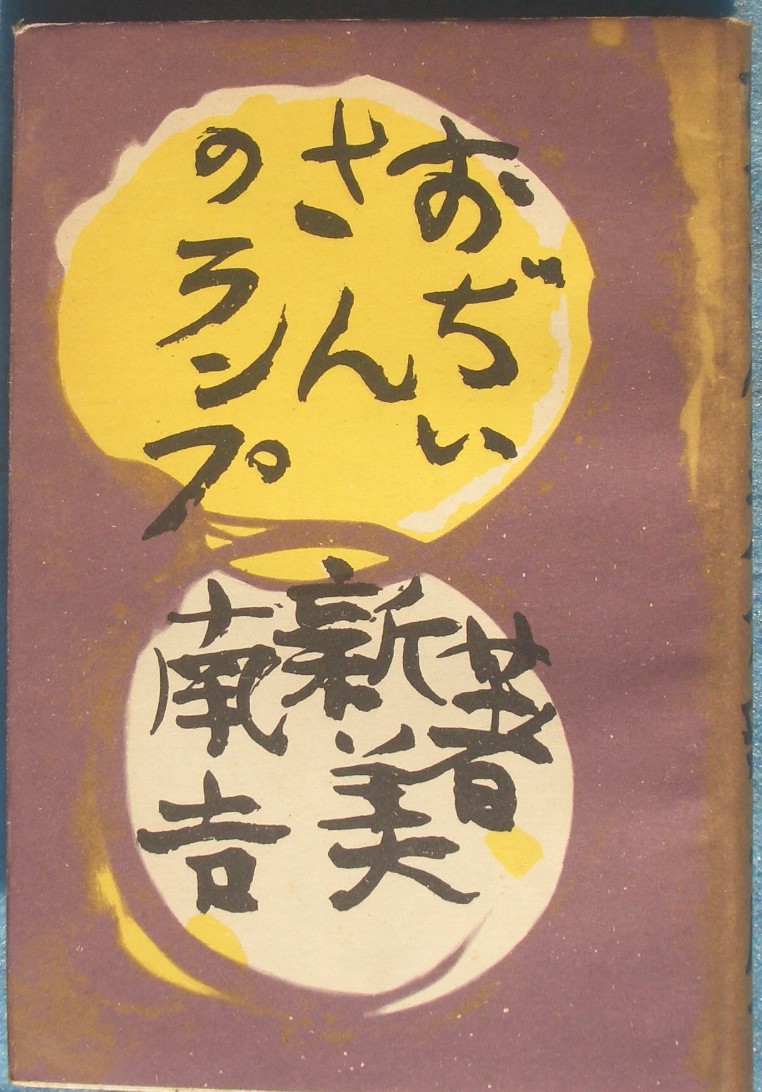 おぢい
さん
のランプ
著
新美
南吉